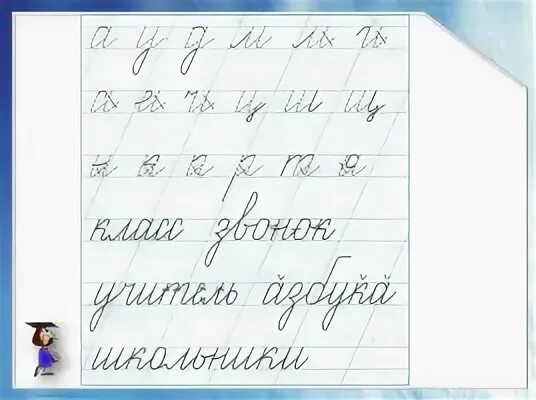 а у д м л г
а е ч ц ш щ
н в к р т я
класс звонок
учитель азбука
школьники